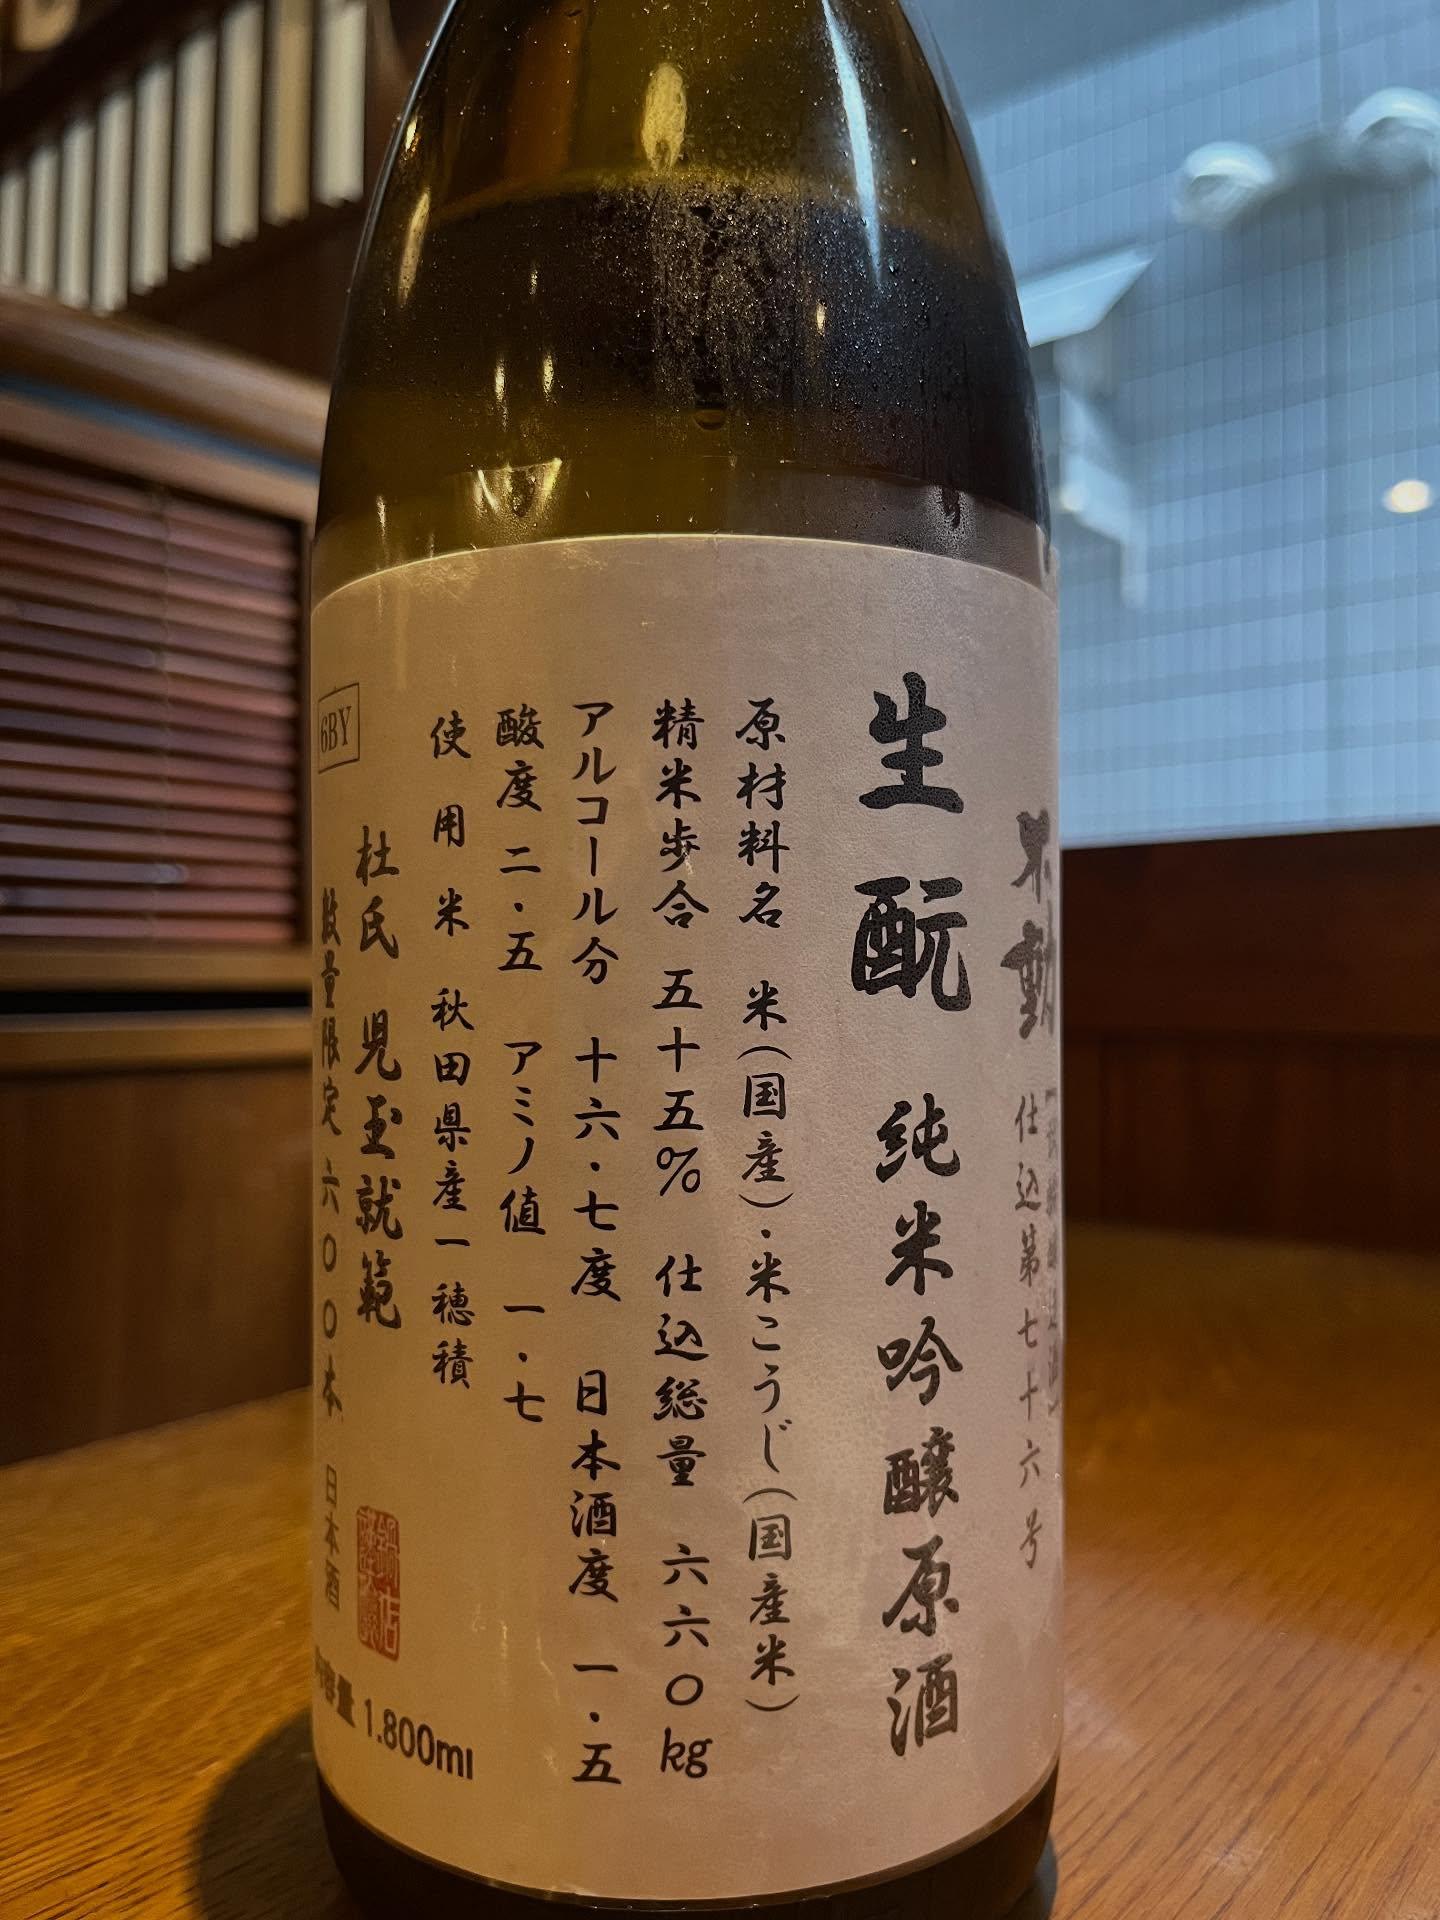 不動
仕込第七十六号
生酛 純米吟醸原酒
原材料名 米(国産)・米こうじ(国産米)
精米歩合 五十五% 仕込総量 六六〇kg
アルコール分 十六・七度 日本酒度 一・五
酸度 二・五 アミノ値 一・七
使用米 秋田県産一穂積
杜氏 児玉就範
数量限定 六〇〇本 日本酒
6BY
内容量 1.800ml